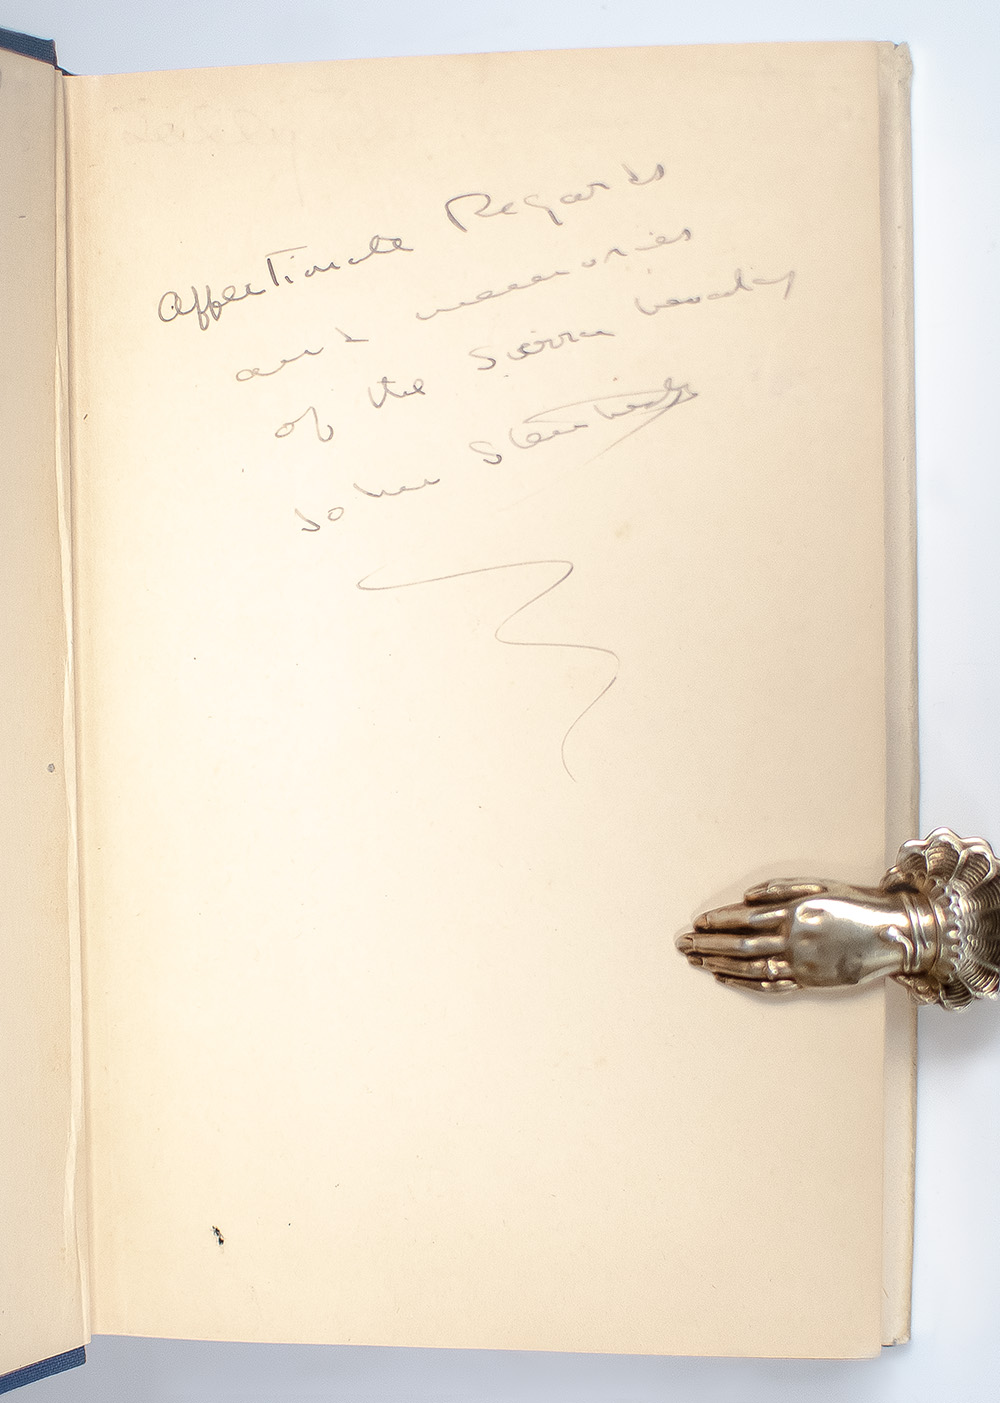 Affectionate Regards
and memories
of the Sierra
John Steinbeck